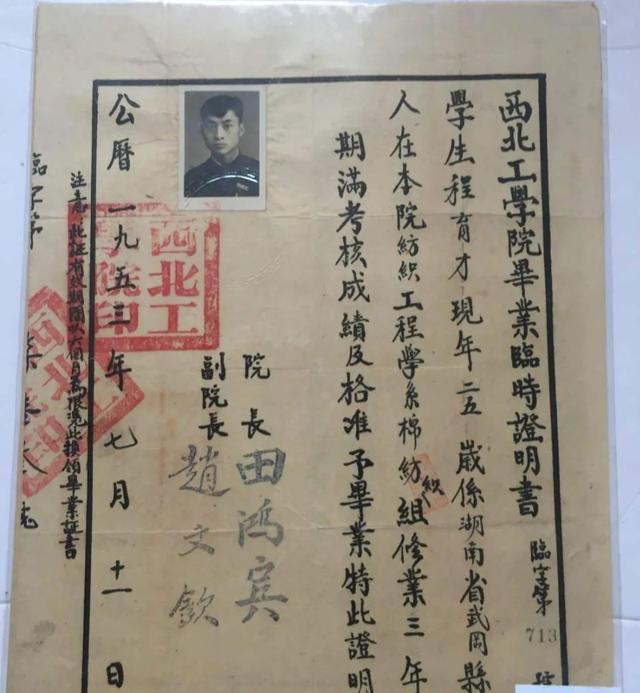 西北工學院畢業臨時證明書
臨字第713號
學生程育才現年二五歲係湖南省武岡縣
人在本院紡織工程學系棉紡織組修業三年
期滿考核成績及格准予畢業特此證明
院長田鴻賓
副院長趙文欽
西北工
學院印
公曆一九五三年七月十一日
注意：此証有效期間以六個月為限憑此換領畢業証書
臨字第